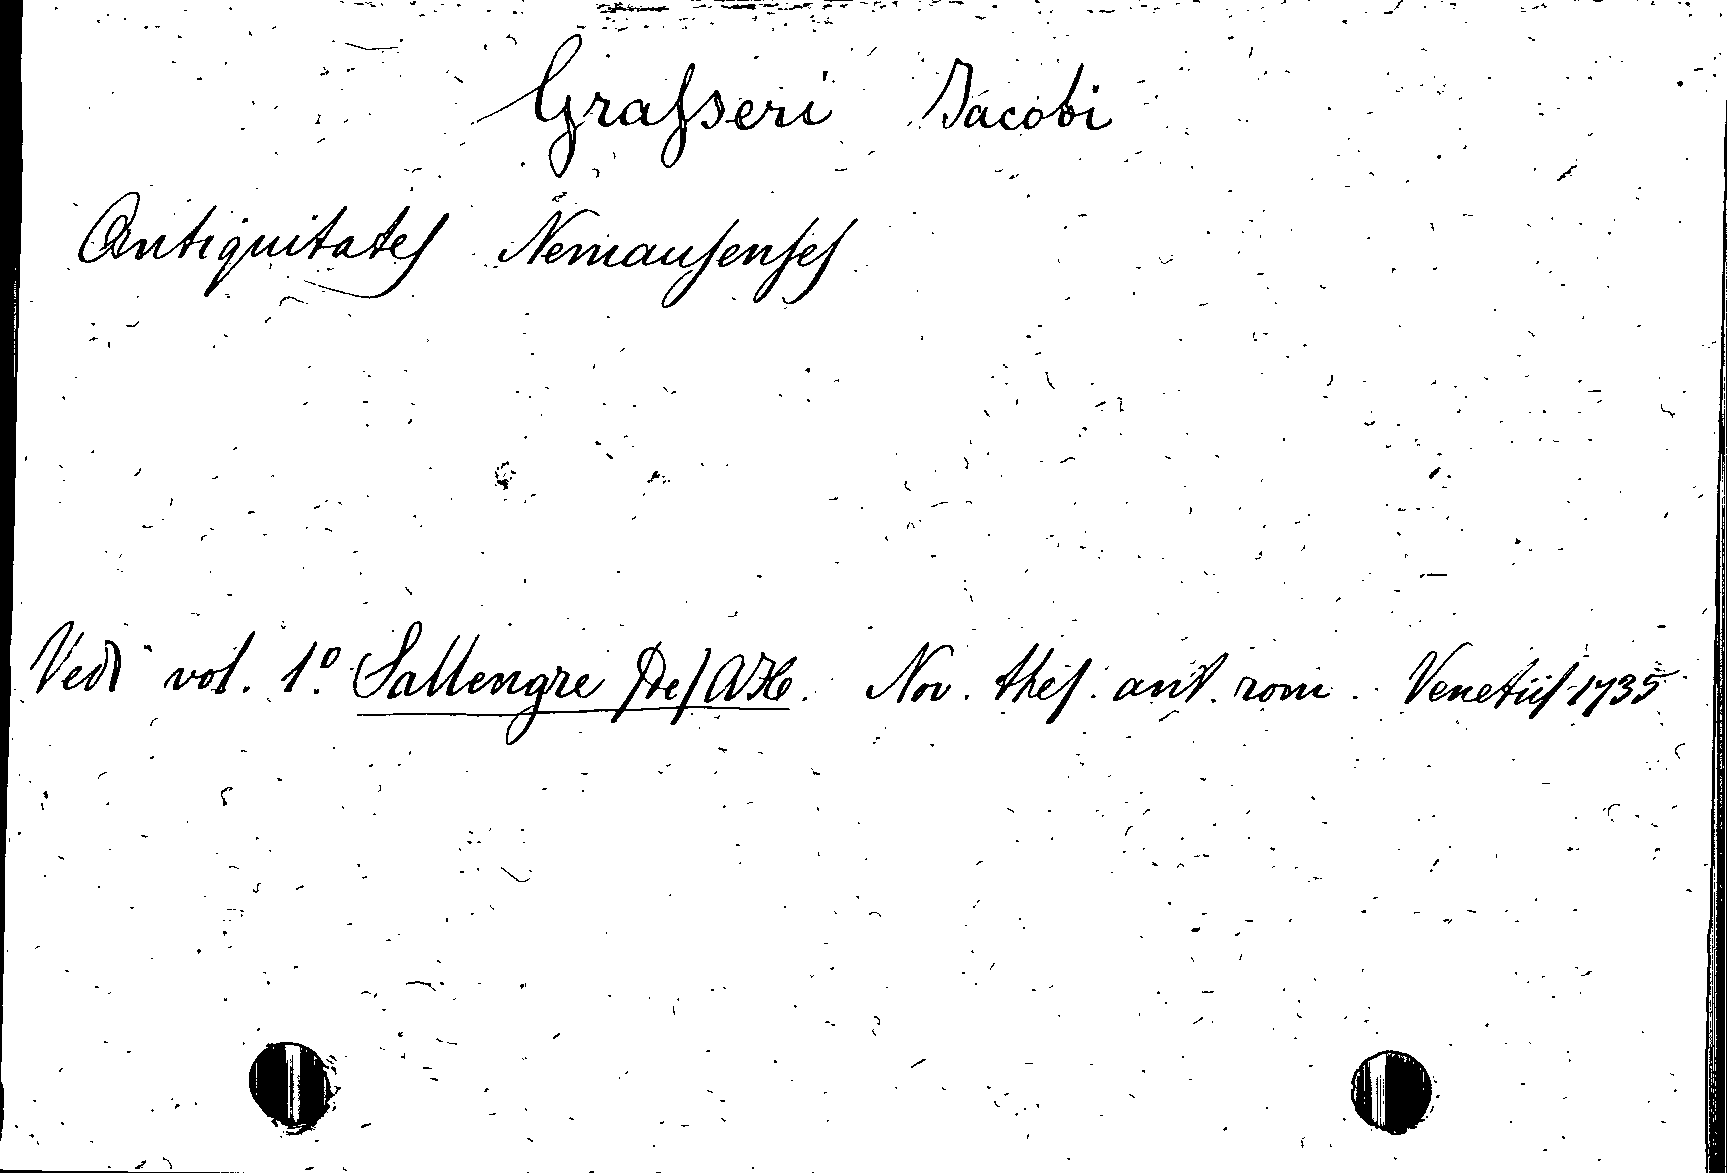 Grasseri Jacobi
Antiquitates Nemausenses
Vedi vol. 1.º Sallengre De A.H. Nov. thes. ant. rom. Venetiis 1735